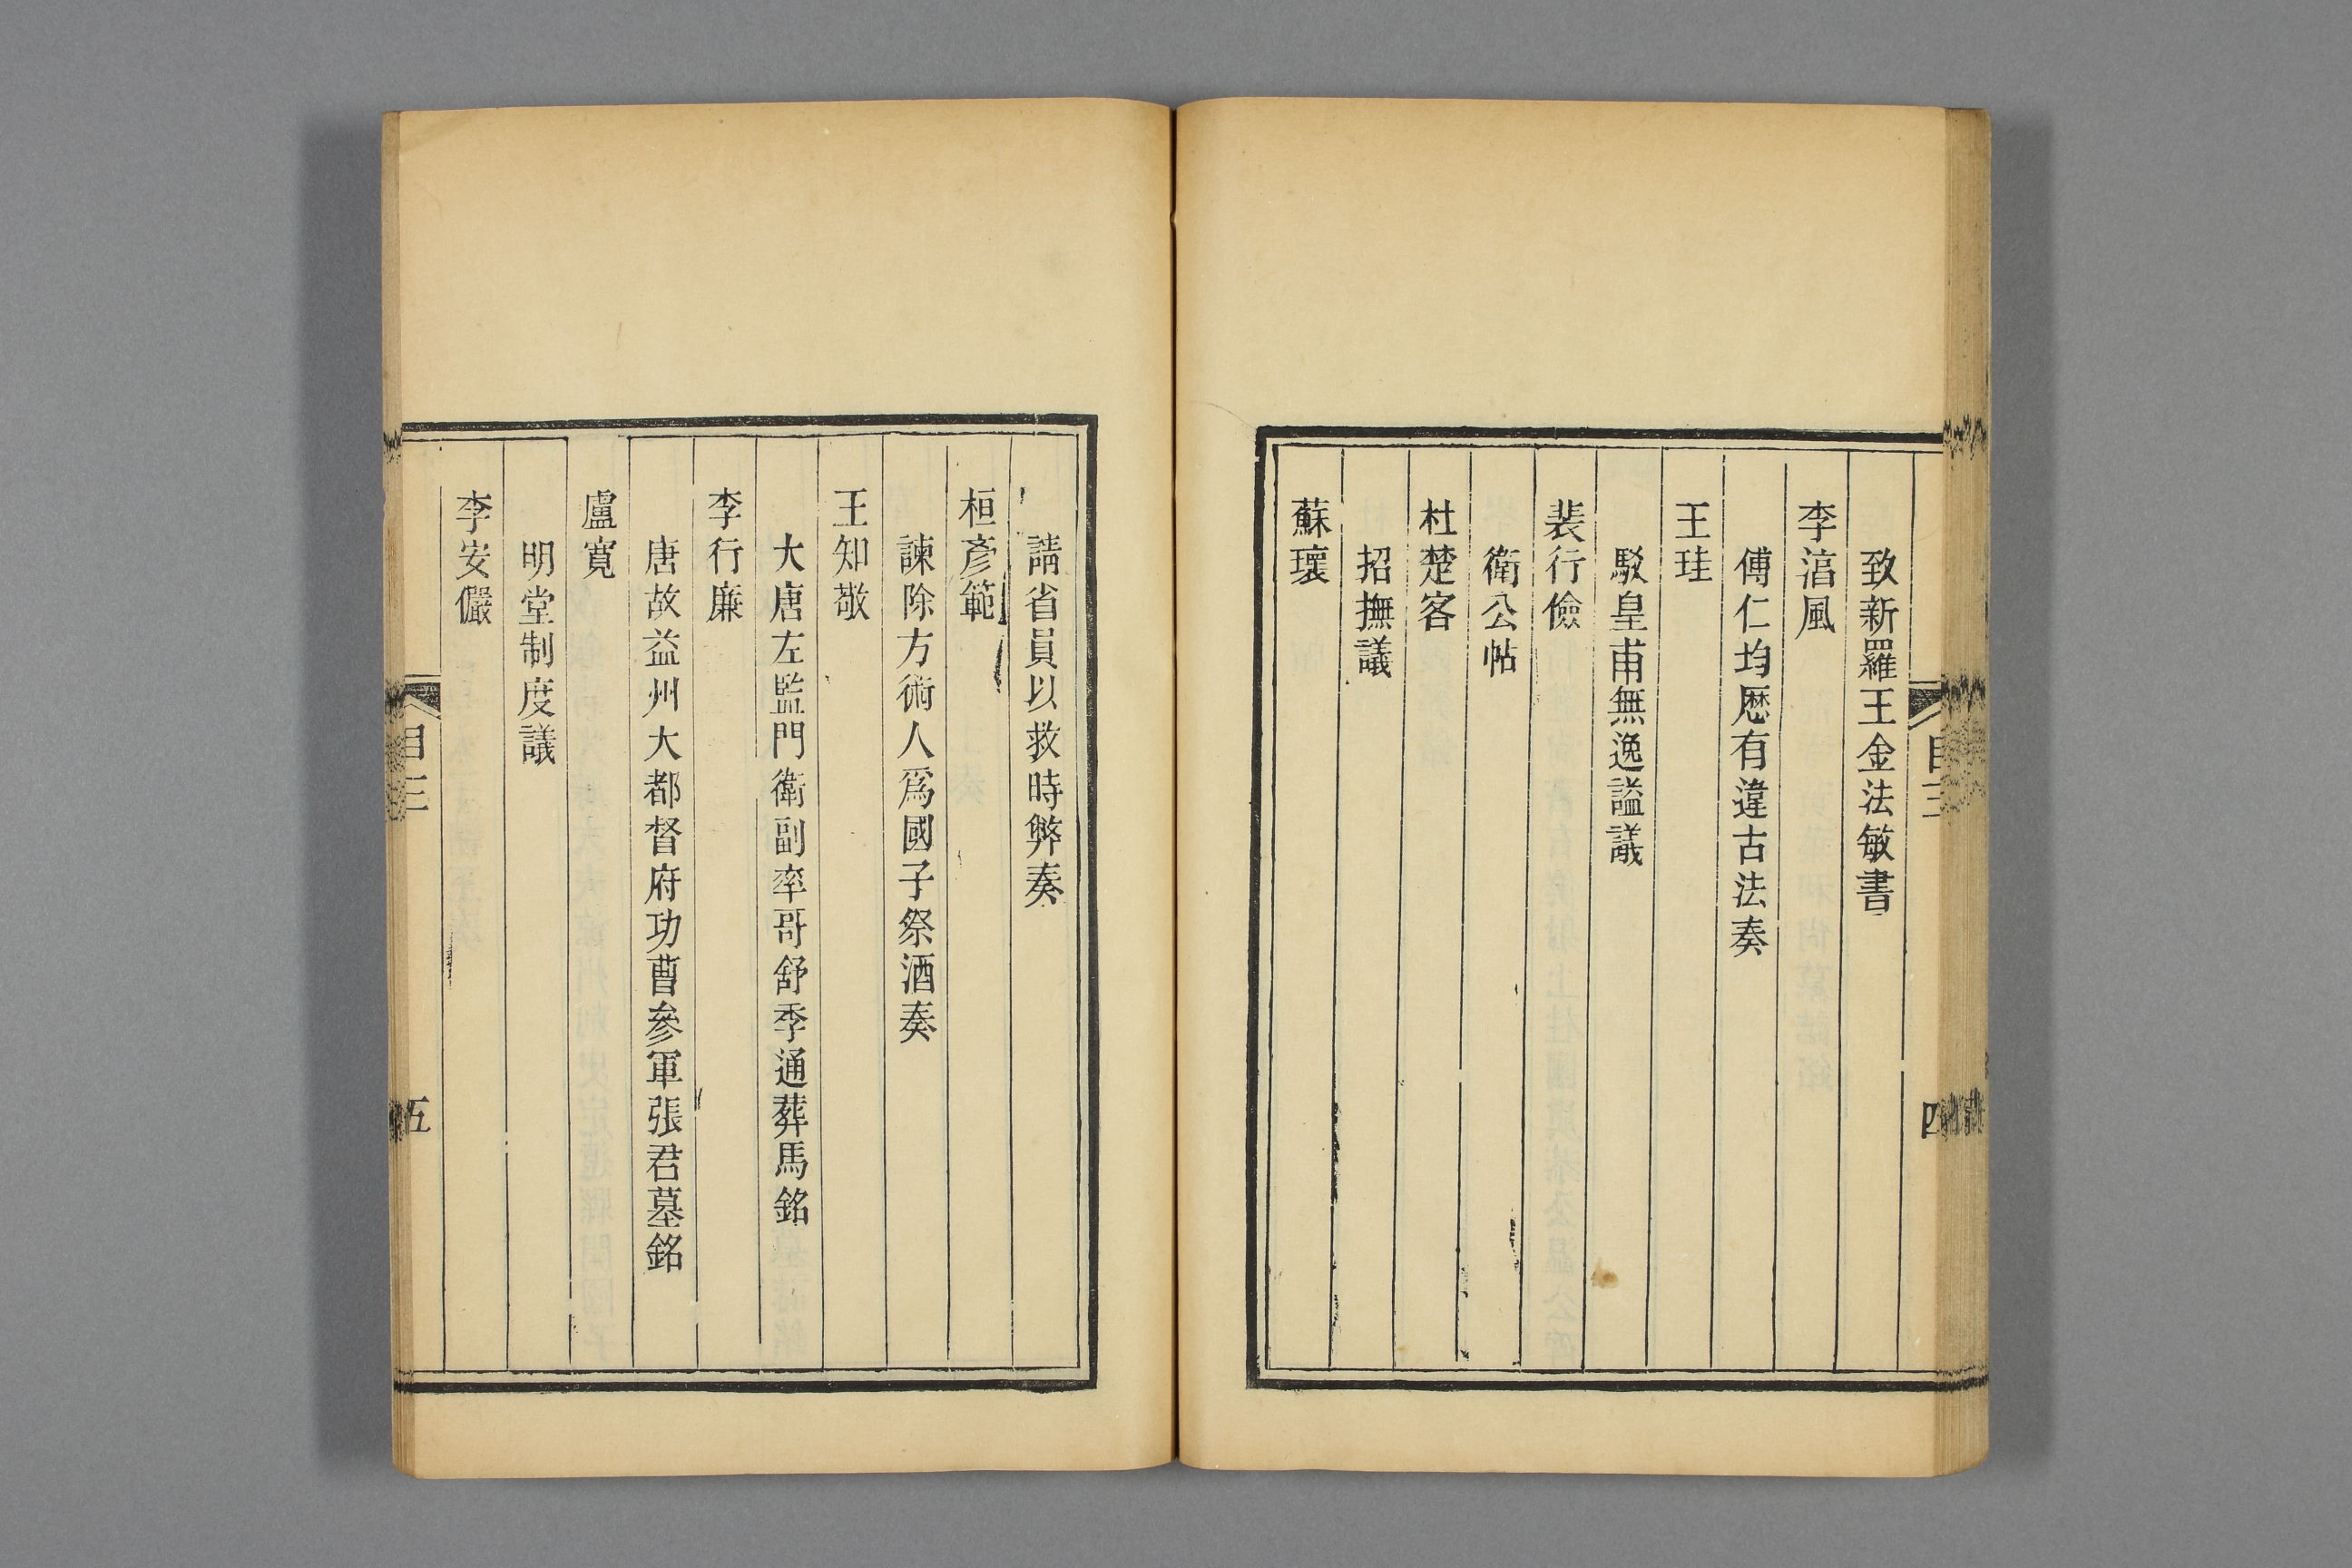 致新羅王金法敏書
李湻風
傅仁均厯有違古法奏
王珪
駁皇甫無逸謚議
裴行儉
衛公帖
杜楚客
招撫議
蘇瓌
目三
四
請省員以救時弊奏
桓彥範
諫除方術人爲國子祭酒奏
王知敬
大唐左監門衛副率哥舒季通葬馬銘
李行廉
唐故益州大都督府功曹參軍張君墓銘
盧寬
明堂制度議
李安儼
目三
五